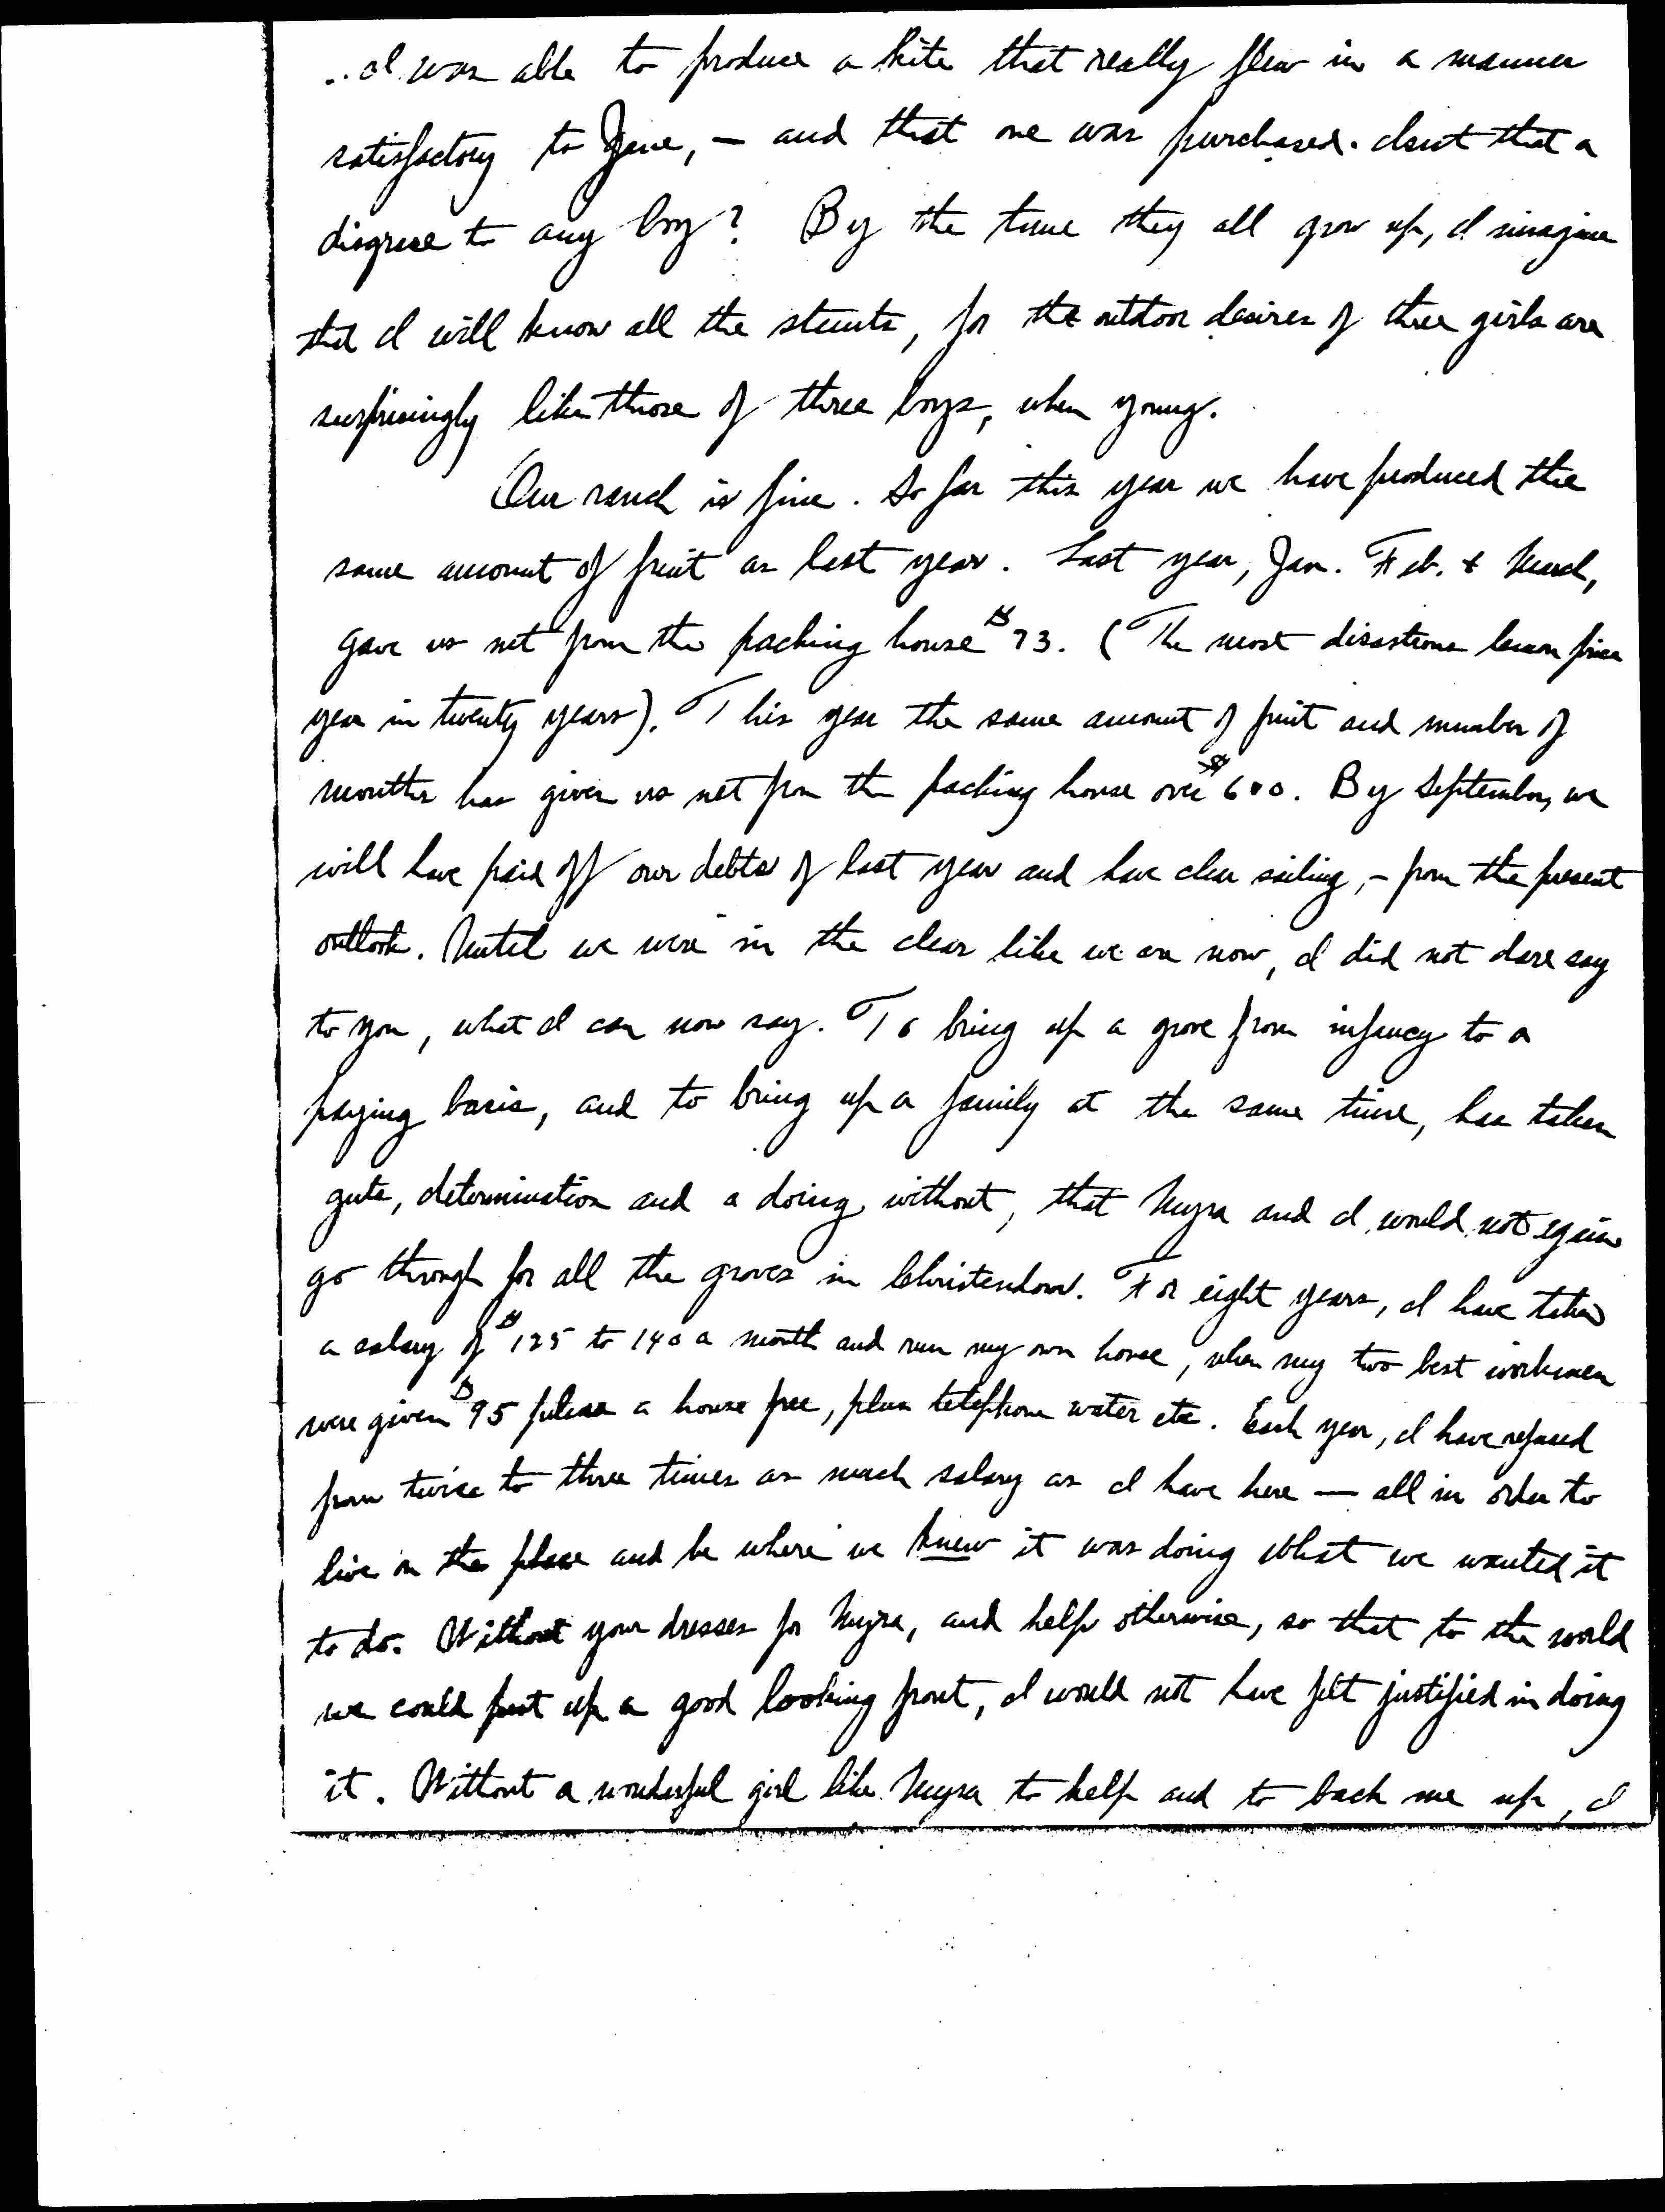 ..I was able to produce a kite that really flew in a manner
satisfactory to Jane, – and that one was purchased. Isn't that a
disgrace to any boy? By the time they all grow up, I imagine
that I will know all the stunts, for the outdoor desires of three girls are
surprisingly like those of three boys, when young.
Our ranch is fine. So far this year we have produced the
same amount of fruit as last year. Last year, Jan. Feb. & March,
gave us net from the packing house $73. (The most disastrous lemon price
year in twenty years). This year the same amount of fruit and number of
months has given us net from the packing house over $600. By September, we
will have paid off our debts of last year and have clear sailing, – from the present
outlook. Until we were in the clear like we are now, I did not dare say
to you, what I can now say. To bring up a grove from infancy to a
paying basis, and to bring up a family at the same time, has taken
guts, determination and a doing without, that Myra and I would not again
go through for all the groves in Christendom. For eight years, I have taken
a salary of $125 to 140 a month and run my own house, when my two best workmen
were given $95 plus a house free, plus telephone water etc. Each year, I have refused
from twice to three times as much salary as I have here — all in order to
live on the place and be where we knew it was doing what we wanted it
to do. Without your dresses for Myra, and help otherwise, so that to the world
we could put up a good looking front, I would not have felt justified in doing
it. Without a wonderful girl like Myra to help and to back me up, I